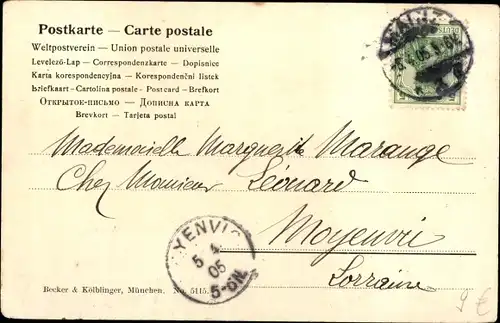 Postkarte – Carte postale
Weltpostverein – Union postale universelle
Levelező-Lap – Correspondenzkarte – Dopisnice
Karta korespondencyjna – Korespondenční lístek
Briefkaart – Cartolina postale – Postcard – Brefkort
Открытое-письмо – Дописна карта
Brevkort – Tarjeta postal
Mademoiselle Marguerite Marange
Chez Monsieur Léonard
Moyenvic
Lorraine
YENVIC
5 4
05
5-6N.
Becker & Kölblinger, München. No. 5115.
9 €